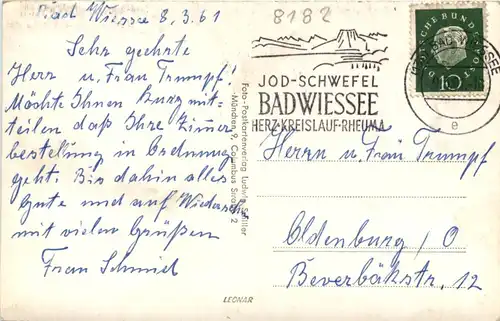 Bad Wiessee 8.3.61
8182
Sehr geehrte
Herr u. Frau Trumpf!
Möchte Ihnen kurz mit-
teilen daß Ihre Zimmer
bestellung in Ordnung
geht. Bis dahin alles
Gute und auf Wiedersehn
mit vielen Grüßen
Frau Schmid
Foto-Postkartenverlag Ludwig
München 9, Columbus Strasse 2
JOD-SCHWEFEL
BADWIESSEE
HERZ-KREISLAUF-RHEUMA
DEUTSCHE BUNDESPOST
10
e
Herrn u. Frau Trumpf
Oldenburg/O
Beverbäkstr. 12
LEONAR